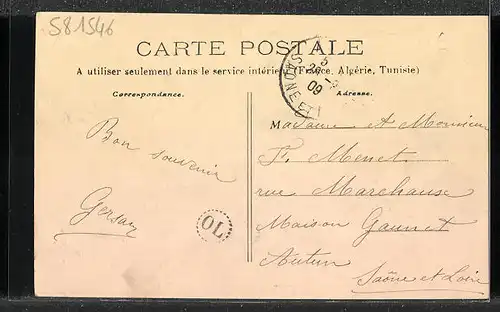 581546
CARTE POSTALE
A utiliser seulement dans le service intérieur (France, Algérie, Tunisie)
Correspondance.
Adresse.
SAONE ET L
5
09
Bon souvenir
Gersay
OL
Madame et Monsieur
F. Menet
rue Marchause
Maison Gaunet
Autun
Saône et Loire